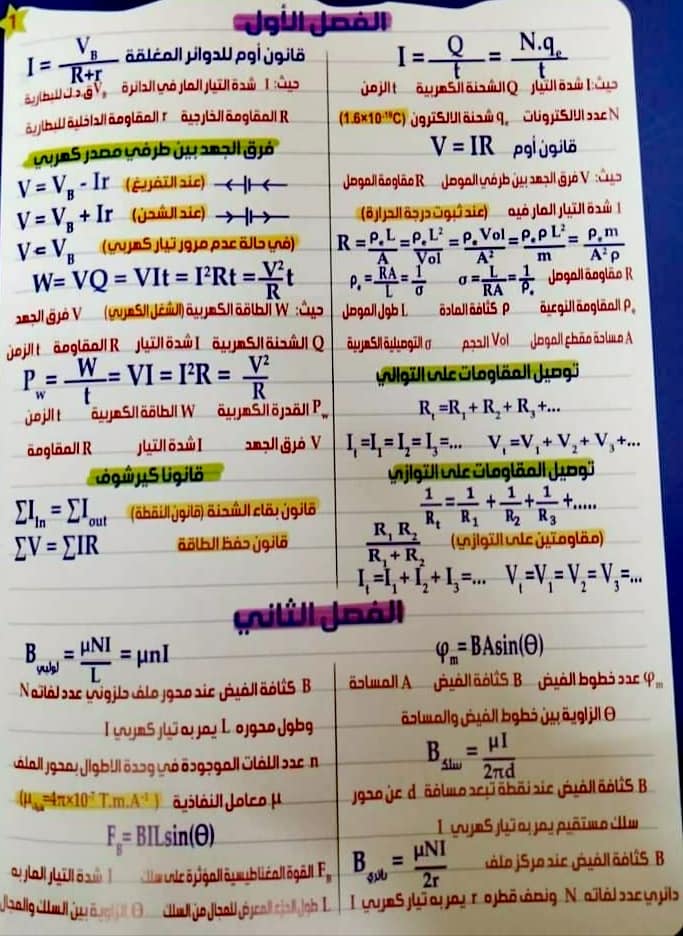 1
الفصل الأول
I = Q/t = N.qₑ/t
حيث: I شدة التيار Q الشحنة الكهربية t الزمن
N عدد الالكترونات qₑ شحنة الالكترون (1.6×10⁻¹⁹C)
قانون أوم V = IR
حيث: V فرق الجهد بين طرفي الموصل R مقاومة الموصل
I شدة التيار المار فيه (عند ثبوت درجة الحرارة)
R = ρₑL/A = ρₑL²/Vol = ρₑVol/A² = ρₑρL²/m = ρₑm/A²ρ
ρₑ = RA/L = 1/σ σ = L/RA = 1/ρₑ
R مقاومة الموصل
ρₑ المقاومة النوعية ρ كثافة المادة L طول الموصل
A مساحة مقطع الموصل Vol الحجم σ التوصيلية الكهربية
توصيل المقاومات على التوالي
Rₜ = R₁ + R₂ + R₃ +...
Iₜ = I₁ = I₂ = I₃ =... Vₜ = V₁ + V₂ + V₃ +...
توصيل المقاومات على التوازي
1/Rₜ = 1/R₁ + 1/R₂ + 1/R₃ +.....
(مقاومتين على التوازي) R₁ R₂/R₁ + R₂
Iₜ = I₁ + I₂ + I₃ =... Vₜ = V₁ = V₂ = V₃ =...
قانون أوم للدوائر المغلقة I = V_B/R+r
حيث: I شدة التيار المار في الدائرة V_B ق.د.ك للبطارية
R المقاومة الخارجية r المقاومة الداخلية للبطارية
فرق الجهد بين طرفي مصدر كهربي
V = V_B - Ir (عند التفريغ)
V = V_B + Ir (عند الشحن)
V = V_B (في حالة عدم مرور تيار كهربي)
W = VQ = VIt = I²Rt = V²/R t
حيث: W الطاقة الكهربية (الشغل الكهربي) V فرق الجهد
Q الشحنة الكهربية I شدة التيار R المقاومة t الزمن
P_w = W/t = VI = I²R = V²/R
P_w القدرة الكهربية W الطاقة الكهربية t الزمن
V فرق الجهد I شدة التيار R المقاومة
قانونا كيرشوف
ΣI_in = ΣI_out قانون بقاء الشحنة (قانون النقطة)
ΣV = ΣIR قانون حفظ الطاقة
الفصل الثاني
φₘ = BAsin(Θ)
φₘ عدد خطوط الفيض B كثافة الفيض A المساحة
Θ الزاوية بين خطوط الفيض والمساحة
B سلك = μI/2πd
B كثافة الفيض عند نقطة تبعد مسافة d عن محور
سلك مستقيم يمر به تيار كهربي I
B دائري = μNI/2r
B كثافة الفيض عند مركز ملف
دائري عدد لفاته N ونصف قطره r يمر به تيار كهربي I
B لولبي = μNI/L = μnI
B كثافة الفيض عند محور ملف حلزوني عدد لفاته N
وطول محوره L يمر به تيار كهربي I
n عدد اللفات الموجودة في وحدة الاطوال بمحور الملف
μ معامل النفاذية =4π×10⁻⁷ T.m.A⁻¹)
F_B = BILsin(Θ)
F_B القوة المغناطيسية المؤثرة على سلك I شدة التيار المار به
L طول الجزء المعرض للمجال من السلك Θ الزاوية بين السلك والمجال